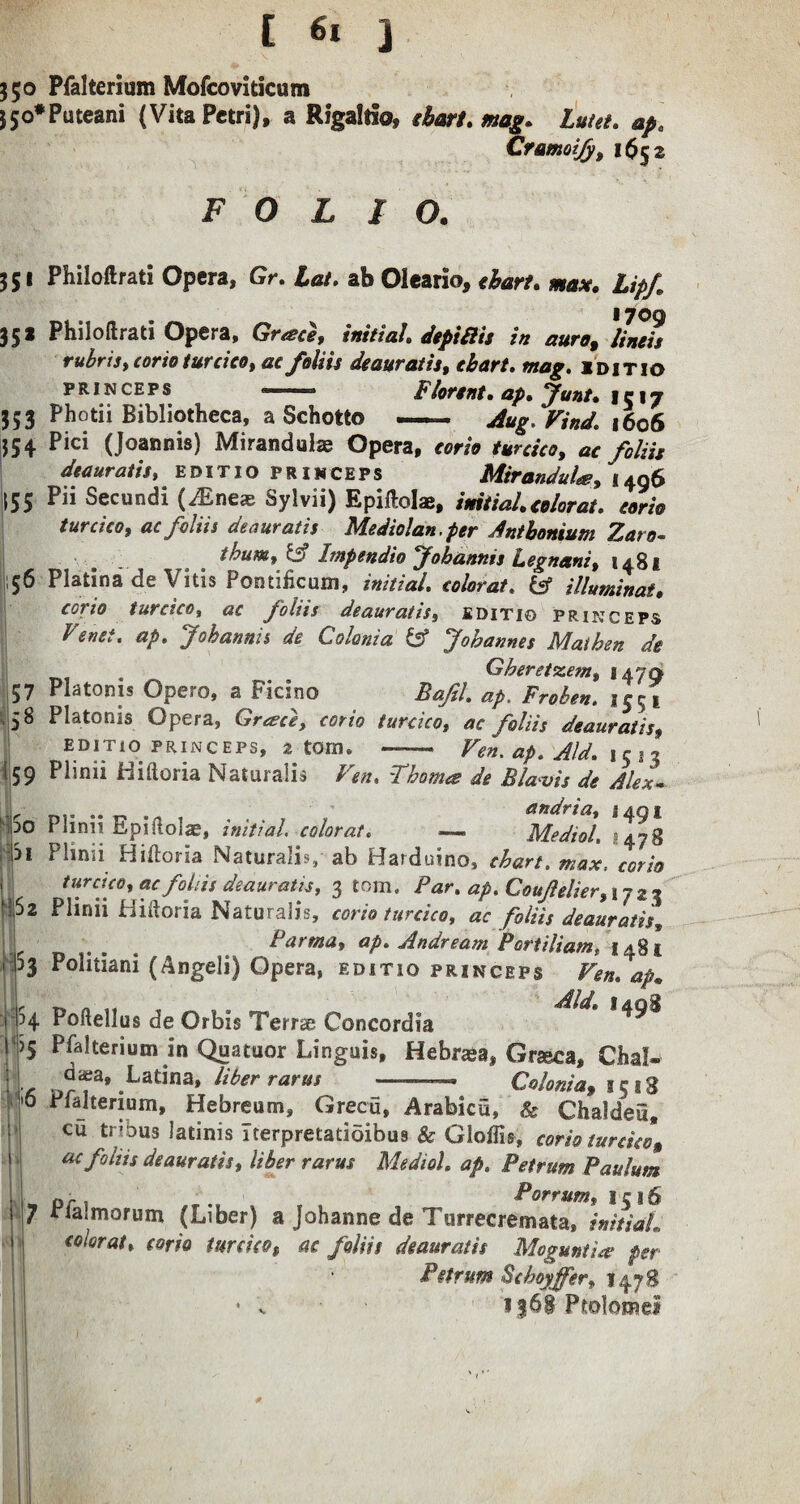 [ 61 ]
350 Pſalterium Moſcoviticum
350* Puteani (Vita Petri), a Rigaltio, chart. mag. Lutet. ap.
Cramoiſy, 1652
FOLIO.
351 Philoſtrati Opera, Gr. Lat. ab Oleario, chart. max. Lipſ.
1709
352 Philoſtrati Opera, Græcè, initial. depictis in auro, lineis
rubris, corio turcico, ac foliis deauratis, chart. mag. EDITIO
PRINCEPS —— Florent. ap. Junt. 1517
353 Photii Bibliotheca, a Schotto —— Aug. Vind. 1606
354 Pici (Joannis) Mirandulæ Opera, corio turcico, ac foliis
deauratis, EDITIO PRINCEPS Mirandulæ, 1496
355 Pii Secundi (Æneæ Sylvii) Epiſtolæ, initial. colorat. corio
turcico, ac foliis deauratis Mediolan. per Anthonium Zaro-
thum, & Impendio Johannis Legnani, 1481
56 Platina de Vitis Pontificum, initial. colorat. & illuminat.
corio turcico, ac foliis deauratis, EDITIO PRINCEPS
Venet. ap. Johannis de Colonia & Johannes Mathen de
Gheretzem, 1479
57 Platonis Opero, a Ficino Baſil. ap. Froben. 1551
58 Platonis Opera, Græcè, corio turcico, ac foliis deauratis,
EDITIO PRINCEPS, 2 tom. —— Ven. ap. Ald. 1513
59 Plinii Hiſtoria Naturalis Ven. Thomæ de Blavis de Alex-
andria, 1491
60 Plinii Epiſtolæ, initial. colorat. — Mediol. 1478
61 Plinii Hiſtoria Naturalis, ab Harduino, chart. max. corio
turcico, ac foliis deauratis, 3 tom. Par. ap. Couſtelier, 1723
62 Plinii Hiſtoria Naturalis, corio turcico, ac foliis deauratis,
Parma, ap. Andream Portiliam, 1481
63 Politiani (Angeli) Opera, EDITIO PRINCEPS Ven. ap.
Ald. 1498
64 Poſtellus de Orbis Terræ Concordia
65 Pſalterium in Quatuor Linguis, Hebræa, Græca, Chal-
dæa, Latina, liber rarus —— Colonia, 1518
66 Pſalterium, Hebreum, Grecū, Arabicū, & Chaldeū,
cū tribus latinis īterpretatiōibus & Gloſſis, corio turcico,
ac foliis deauratis, liber rarus Mediol. ap. Petrum Paulum
Porrum, 1516
7 Pſalmorum (Liber) a Johanne de Turrecremata, initial.
colorat, corio turcico, ac foliis deauratis Moguntiæ per
Petrum Schoyffer, 1478
1368 Ptolomei